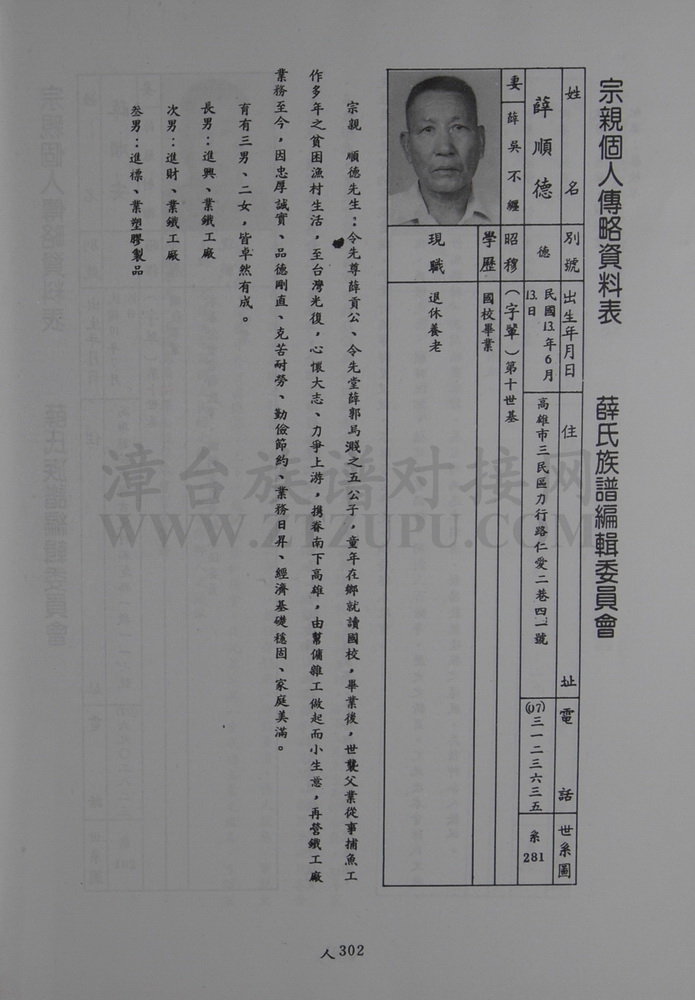 宗親個人傳略資料表　薛氏族譜編輯委員會
姓名　別號　出生年月日　住址　電話　世系圖
薛順德　德　民國13.年6月13.日　高雄市三民區力行路仁愛二巷四一號　(07)三一二三六三五　系281
妻　薛吳不纏　昭穆　(字輩)第十世基
學歷　國校畢業
現職　退休養老
宗親　順德先生：令先尊薛貢公、令先堂薛郭烏之五公子，童年在鄉就讀國校，畢業後，世襲父業從事捕魚工
作多年之貧困漁村生活，至台灣光復，心懷大志、力爭上游，携眷南下高雄，由幫傭雜工做起而小生意，再營鐵工廠
業務至今，因忠厚誠實、品德剛直、克苦耐勞、勤儉節約、業務日昇、經濟基礎穩固、家庭美滿。
育有三男、二女，皆卓然有成。
長男：進興、業鐵工廠
次男：進財、業鐵工廠
叁男：進標、業塑膠製品
人302
漳台族谱对接网
WWW.ZTZUPU.COM